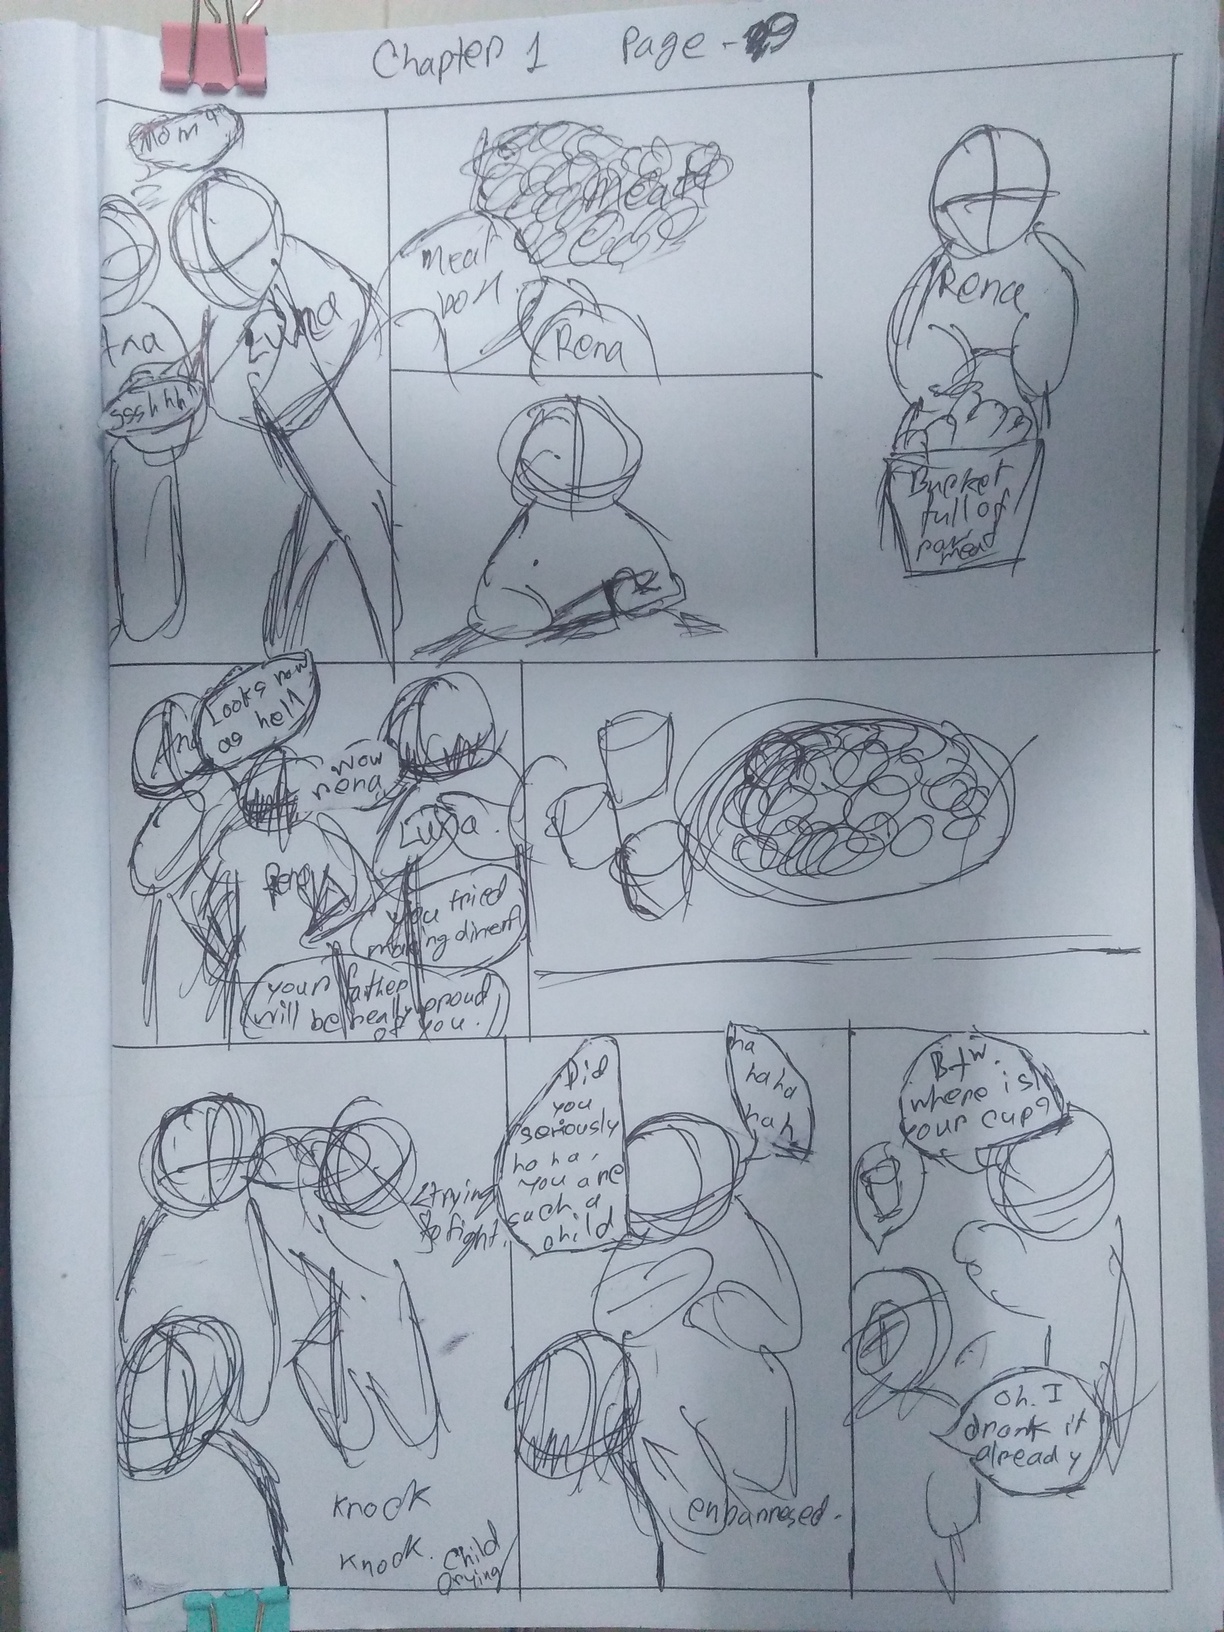 Chapter 1 Page - 9
Mom?
Luna
ssshhh
meat
meat
Rena
Rena
Bucket
full of
raw
meat
Looks raw
as hell
wow
rena
Luna.
Rena
you tried
making dinner
your father
will be really proud
of you.
trying
to fight.
knock
knock.
child
crying
Did
you
seriously
ha ha,
you are
such a
child
ha
haha
hah
enbarresed.
Btw.
where is
your cup?
Oh. I
drank it
already